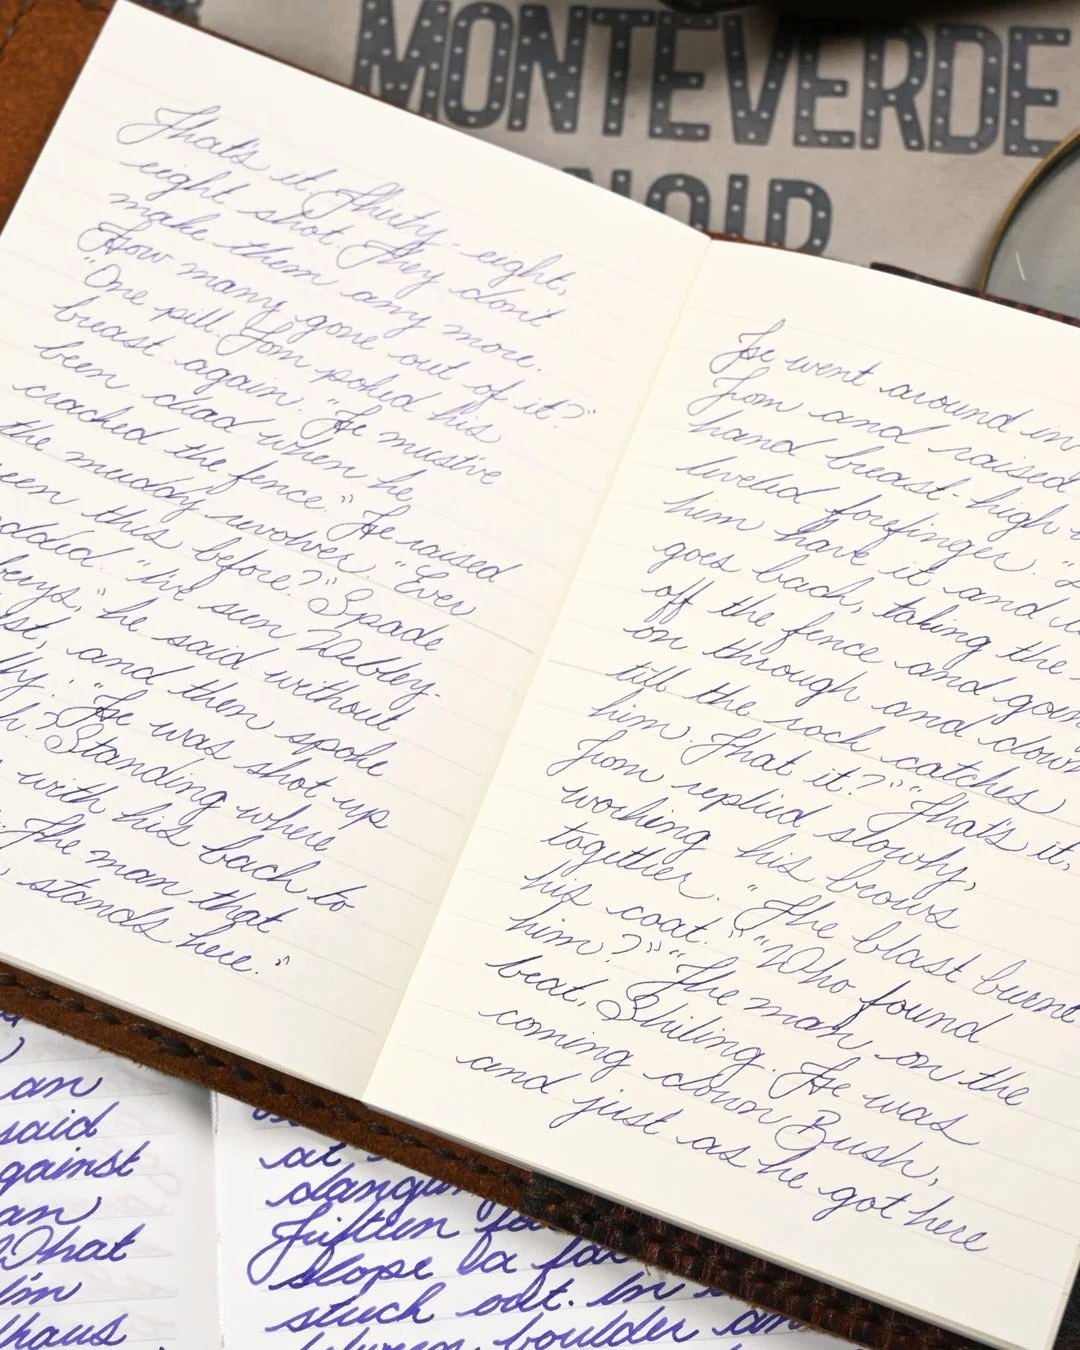 MONTEVERDE
NOIR
That's it. Thirty-eight,
eight shot. They don't
make them any more.
How many gone out of it?"
"One pill. Tom poked his
breast again. "He must've
been dead when he
cracked the fence." He raised
the muddy revolver. "Ever
seen this before?" Spade
nodded. "I've seen Webley-
he said without
and then spoke
"He was shot up
Standing where
with his back to
"The man that
stands here."
He went around in
Tom and raised
hand breast-high
leveled forefinger.
him have it and
goes back, taking the
off the fence and going
on through and down
till the rock catches
him. That it?" "That's it,
Tom replied slowly,
working his brows
together. "The blast burnt
his coat." "Who found
him?" "The man on the
beat, Shiling. He was
coming down Bush,
and just as he got here
an
said
against
an
What
I'm
at
Fifteen
slope
stuck out. In
between boulder